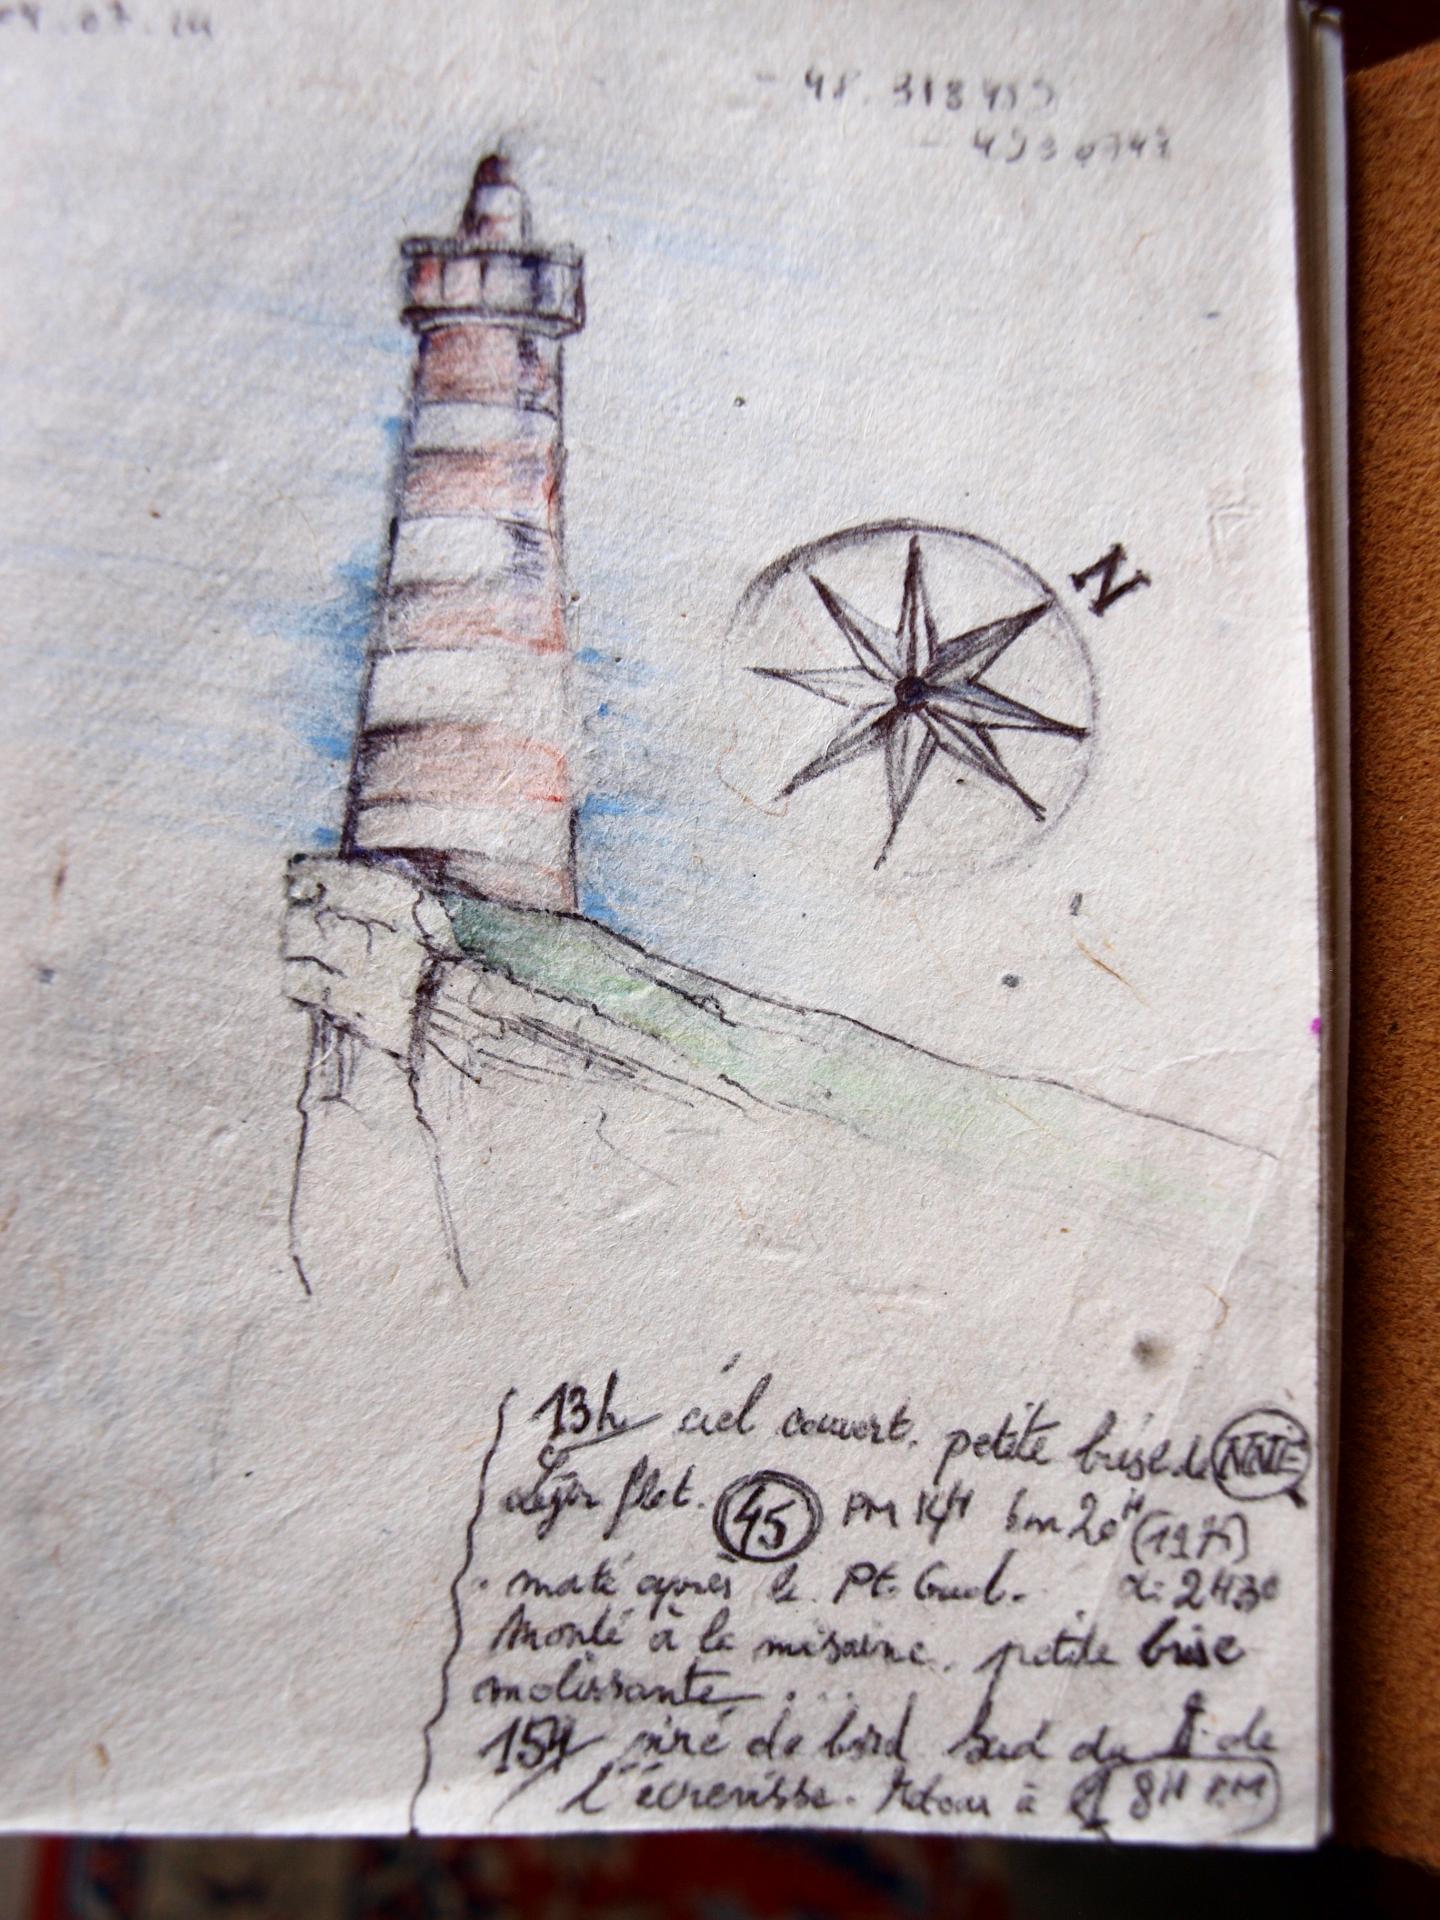 .07.
- 48. 318459
N
13h ciel couvert. petite brise de NNE
Léger flot. 45 PM 14H bm 20H (197)
. maté après le Pt. Gud.
Monté à la misaine. petite brise
molissante ...
15H viré de bord Sud du de
l'écrevisse. Retour à 8H PM